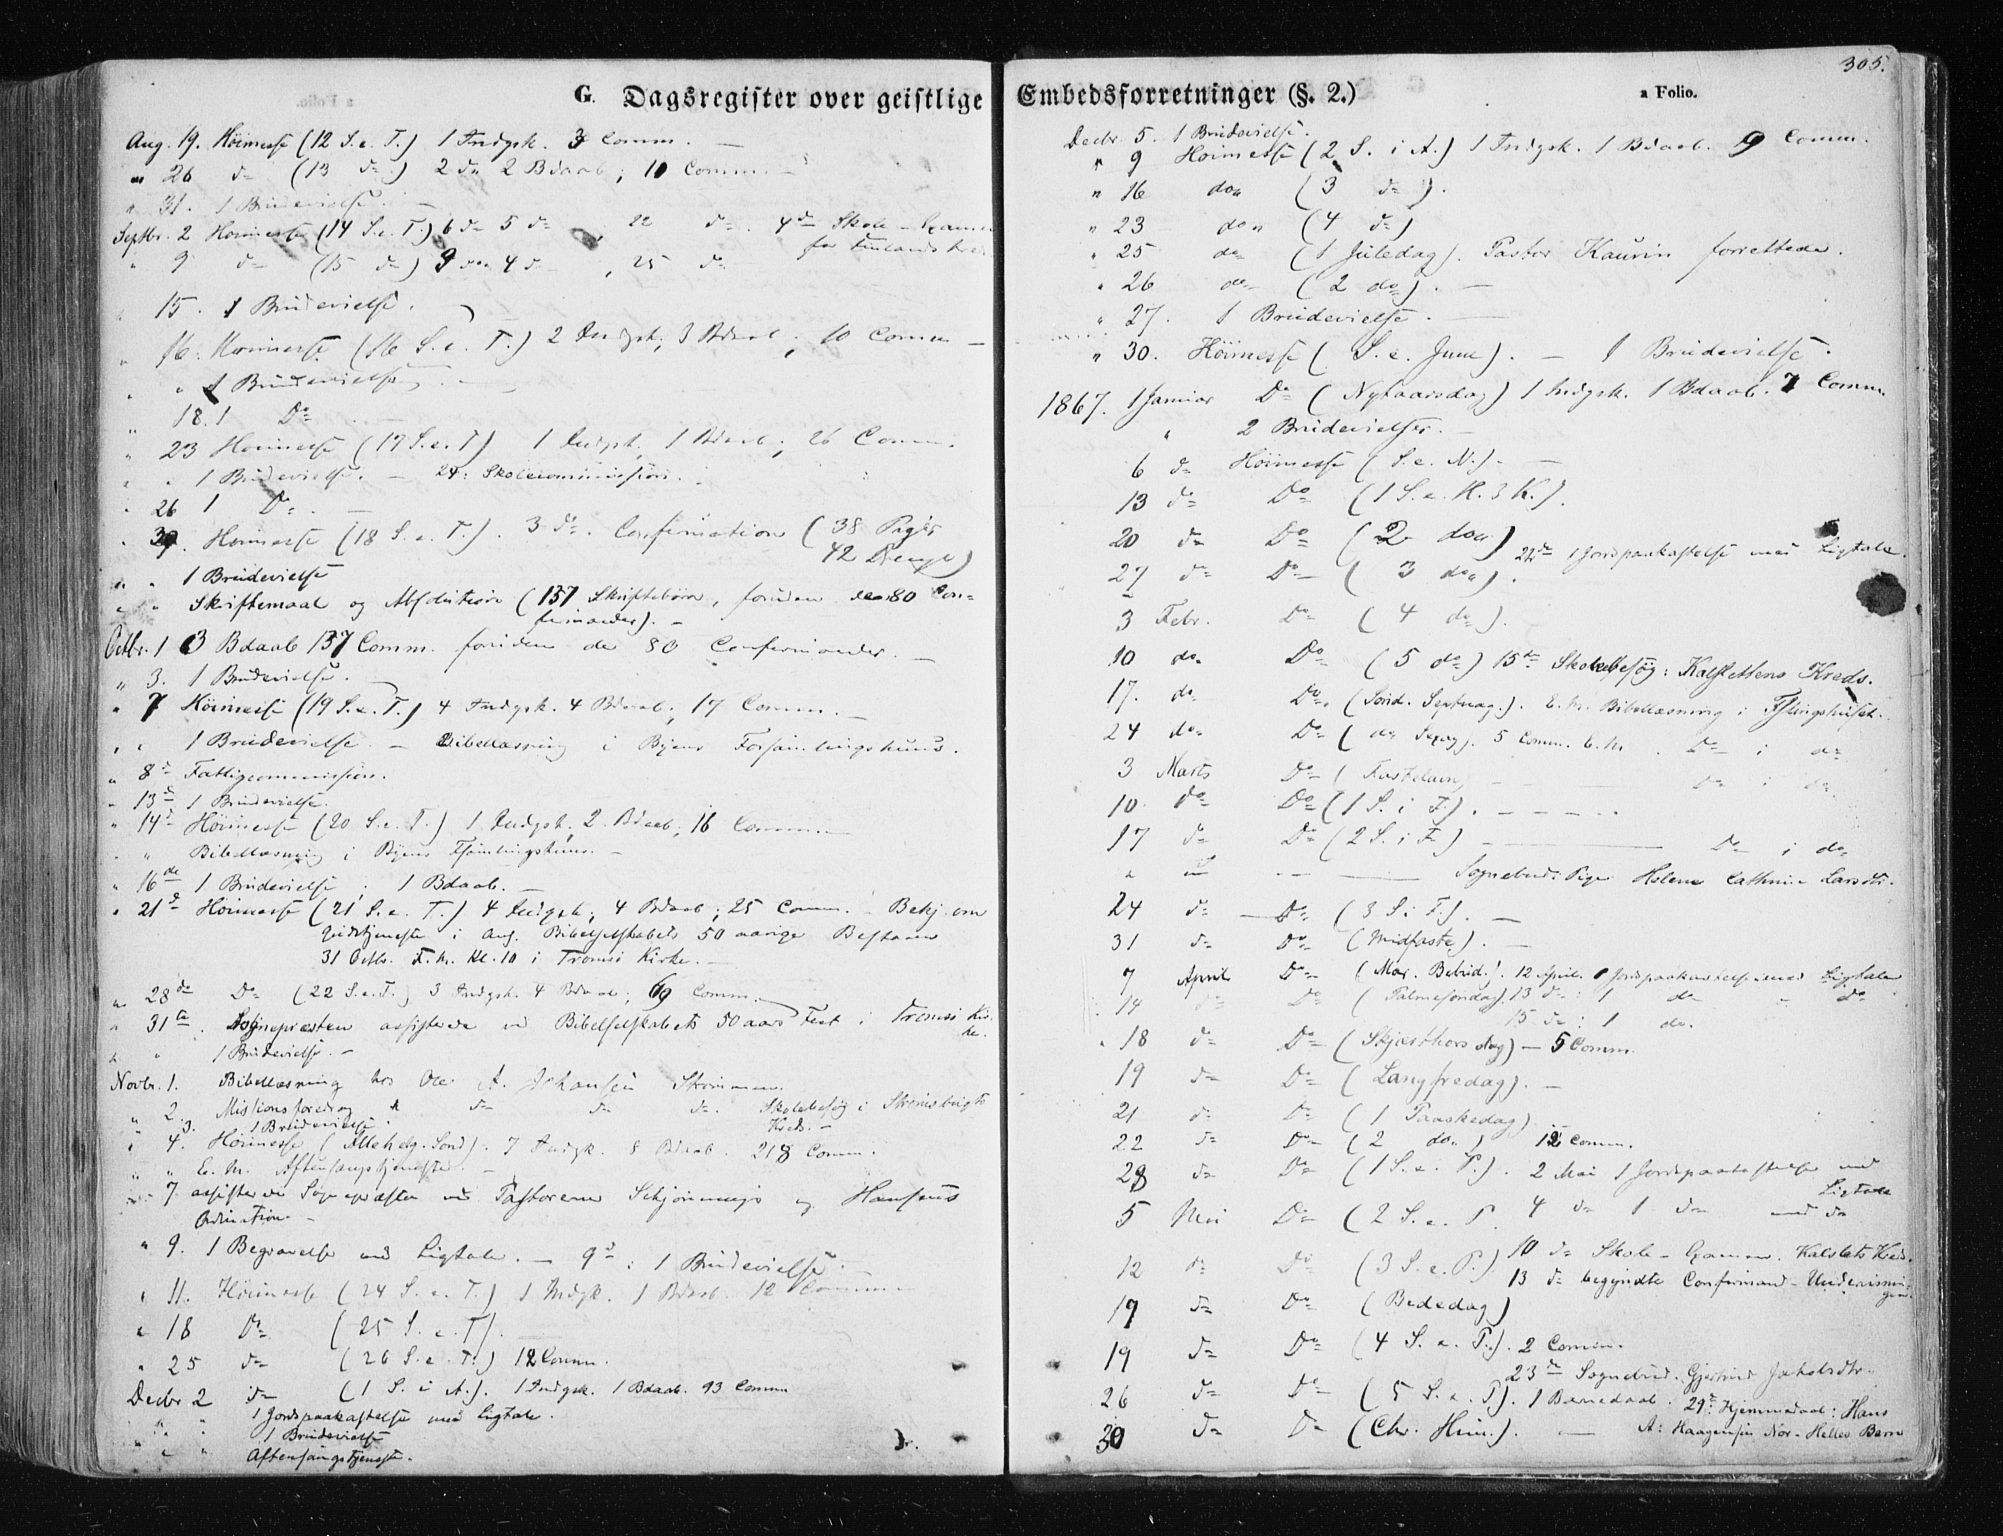 G. Dagsregister over geistlige
Aug. 19. Høimesse (12 S. e. T.) 1 Indgk. 3 Comm. —
" 26 do (13 do) 2 do 2 Bdaab; 10 Comm. —
" 31. 1 Brudevielse. —
Septbr. 2 Høimesse (14 S. e. T.) 6 do 5 do, 22 do. 4de Skole-Examen
for Finlands Kreds
" 9 do (15 do) 9 do 4 do, 25 do
" 15. 1 Brudevielse.
" 16. Høimesse (16 S. e. T.) 2 Indgk, 3 Bdaab, 10 Comm —
" " 1 Brudevielse. —
" 18. 1 Do —
" 23 Høimesse (17 S. e. T) 1 Indgk, 1 Bdaab; 26 Comm.
" " 1 Brudevielse. — 24: Skolecommission.
" 26 1 Do. —
" 30. Høimesse (18 S. e. T.). 3 do. Confirmation (38 Piger
42 Drenge)
" " 1 Brudevielse
" " Skriftemaal og Absolution (137 Skriftebørn, foruden de 80 Con-
firmander). —
Octbr. 1 3 Bdaab 137 Comm. foruden de 80 Confirmander. —
" 3. 1 Brudevielse. —
" 7 Høimesse (19 S. e. T.) 4 Indgk. 4 Bdaab; 17 Comm. —
" " 1 Brudevielse. — Bibellæsning i Byens Forsamlingshuus.
" 8de Fattigcommission.
" 13de 1 Brudevielse.
" 14de Høimesse (20 S. e. T.) 1 Indgk; 2 Bdaab; 16 Comm. —
" " Bibellæsning i Byens Fsamlingshuus. —
" 16de 1 Brudevielse; 1 Bdaab. —
" 21de Høimesse (21 S. e. T.) 4 Indgk; 4 Bdaab; 25 Comm. — Bekj. om
Gudstjeneste i Anl. Bibelselskabets 50 aarige Bestaaen
31 Octbr. F. M. Kl. 10 i Tromsø Kirke. —
" 28de Do (22 S. e. T.) 3 Indgk. 4 Bdaab; 69 Comm. —
" 31te. Sognepræsten assisterede ved Bibelselskabets 50 aars Fest i Tromsø Kir-
ke.
" " 1 Brudevielse. —
Novbr. 1. Bibellæsning hos Ole A. Johansen Strømmen.
" 2. Missionsforedrag do do do. Skolebesøg i Strømsbugts
" 3. 1 Brudevielse. Kreds. —
" 4. Høimesse (Allehelg. Sønd). 7 Indgk. 8 Bdaab. 218 Comm.
" " E. M. Aftensangstjeneste. —
" 7 assisterede Sognepræsten ved Pastorerne og Hansens
Ordination. —
" 9. 1 Begravelse med Ligtale. — 9de: 1 Brudevielse. —
" 11. Høimesse (24 S. e. T.) 1 Indgk. 1 Bdaab. 12 Comm —
" 18 Do (25 S. e. T).
" 25 do (26 S. e. T.) 12 Comm.
Decbr 2 do (1 S. i A.). 1 Indgk. 1 Bdaab. 93 Comm
" " 1 Jordpaakastelse med Ligtale.
" " 1 Brudevielse
" " Aftensangstjeneste.
305.
Embedsforretninger (§. 2.)
a Folio.
Decbr. 5. 1 Brudevielse.
" 9 Høimesse (2 S. i A.) 1 Indgk. 1 Bdaab. 9 Comm.
" 16 do (3 do).
" 23 do (4 do)
" 25 do (1 Juledag). Pastor Kaurin forrettede.
" 26 do (2 do). —
" 27. 1 Brudevielse. —
" 30. Høimesse (S. e. Juul). — 1 Brudevielse.
1867. 1 Januar Do (Nytaarsdag) 1 Indgk. 1 Bdaab. 7 Comm.
" 2 Brudevielser. —
6 do Høimesse (S. e. N.). —
13 do Do (1 S. e. H. 3 K.).
20 do Do (2 do) 22de 1 Jordpaakastelse med Ligtale.
27 do Do — (3 do).
3 Febr. Do (4 do).
10 do Do (5 do) 15de Skolebesøg: Kalslettens Kreds.
17. do Do. (Sønd. Septuag.). E. M. Bibellæsning i Fslingshuset.
24 do Do (do Sexag). 5 Comm. E. M. Do i do
3 Marts Do (Fastelavn) — Do i do
10 do Do (1 S. i F.). — — —
17 do Do (2 S. i F.) — Do i do
" " — Sognebud. Pige Helene Cathrine Larsdtr.
24 do — Do (3 S. i F.). —
31 do Do (Midfaste). —
7 April Do (Mar. Bebud.). 12 April. 1 Jordpaakastelse med Ligtale
14 do Do (Palmesøndag). 13 do: 1 do " do
15 do: 1 do.
18 do Do (Skjærthorsdag) — 5 Comm.
19 do Do (Langfredag). —
21 do Do (1 Paaskedag)
22 do Do (2 do) 12 Comm.
28 do Do (1 S. e. P.). 2 Mai 1 Jordpaakastelse med
Ligtale
5 Mai Do (2 S. e. P. 4 do 1 do med do
12 do Do (3 S. e. P.) 10 do Skole-Examen. Kalslets Kreds.
13 do begyndte Confirmand-Undervisnin-
gen.
17 do Do (Bededag)
19 do Do (4 S. e. P.). 2 Comm.
23de Sognebud. Gjertrud Jakobsdtr.
26 do Do (5 S. e. P). 1 Barnedaab. 29de Hjemmedaab: Hans
30 do Do (Chr. Him.). — A: Haagensen Nor-Helles Barn